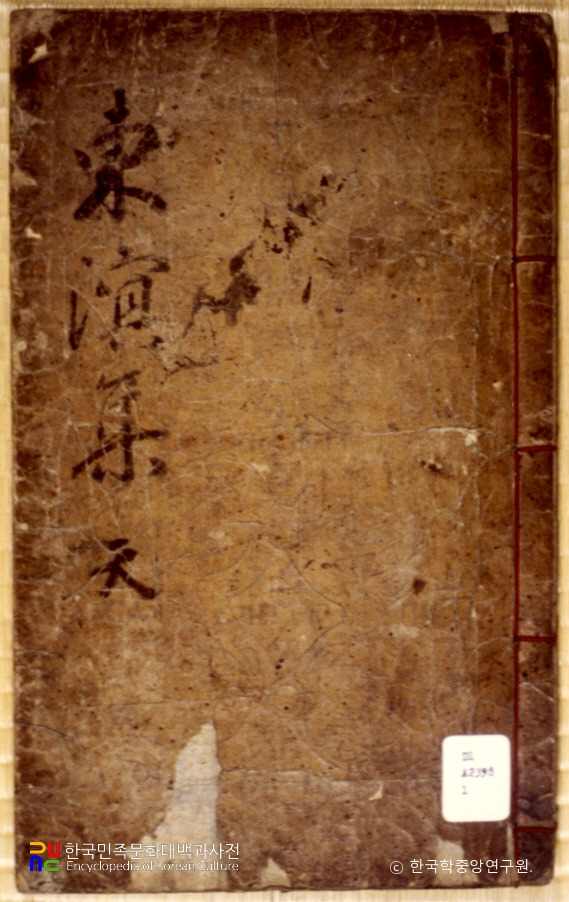 東演集 天
D1
A2398
1
한국민족문화대백과사전
Encyclopedia of Korean Culture
ⓒ 한국학중앙연구원.